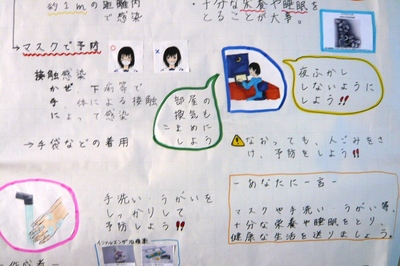 約1mの距離内
で感染
十分な栄養や睡眠を
とることが大事。
→マスクで予防
接触感染
かぜ 下痢等で
手 体による接触
によって感染
→手袋などの着用
部屋の
換気も
こまめに
しよう
夜ふかし
しないように
しよう!!
なおっても、人ごみをさ
け、予防をしよう!!
手洗い・うがいを
しっかりして
予防しよう!!
-あなたに一言-
マスクや手洗い・うがい等、
十分な栄養や睡眠をとり、
健康な生活を送りましょう。